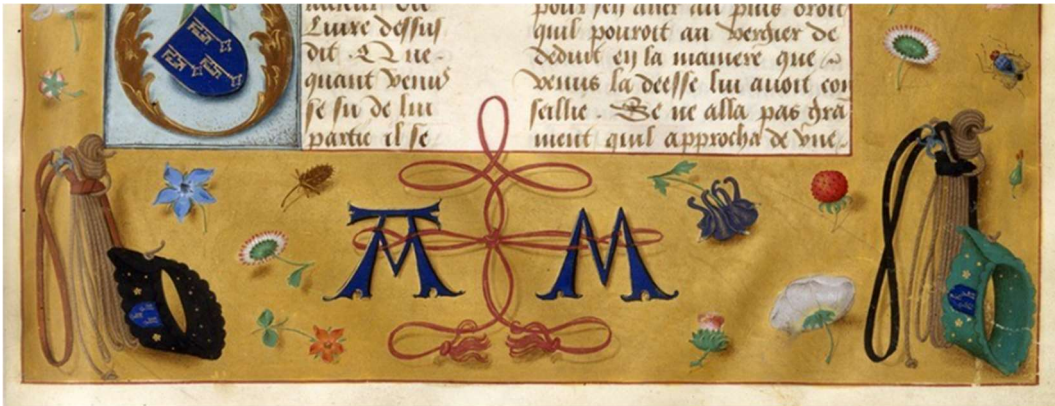 Liure dessus
dit. Que
quant venus
se fu de lui
partie il se
pour sen aler au plus droit
quil pouroit au vergier de
deduit en la maniere que
venus la deesse lui auoit con
seillie. Se ne alla pas gra
ment quil approcha de vne
M M